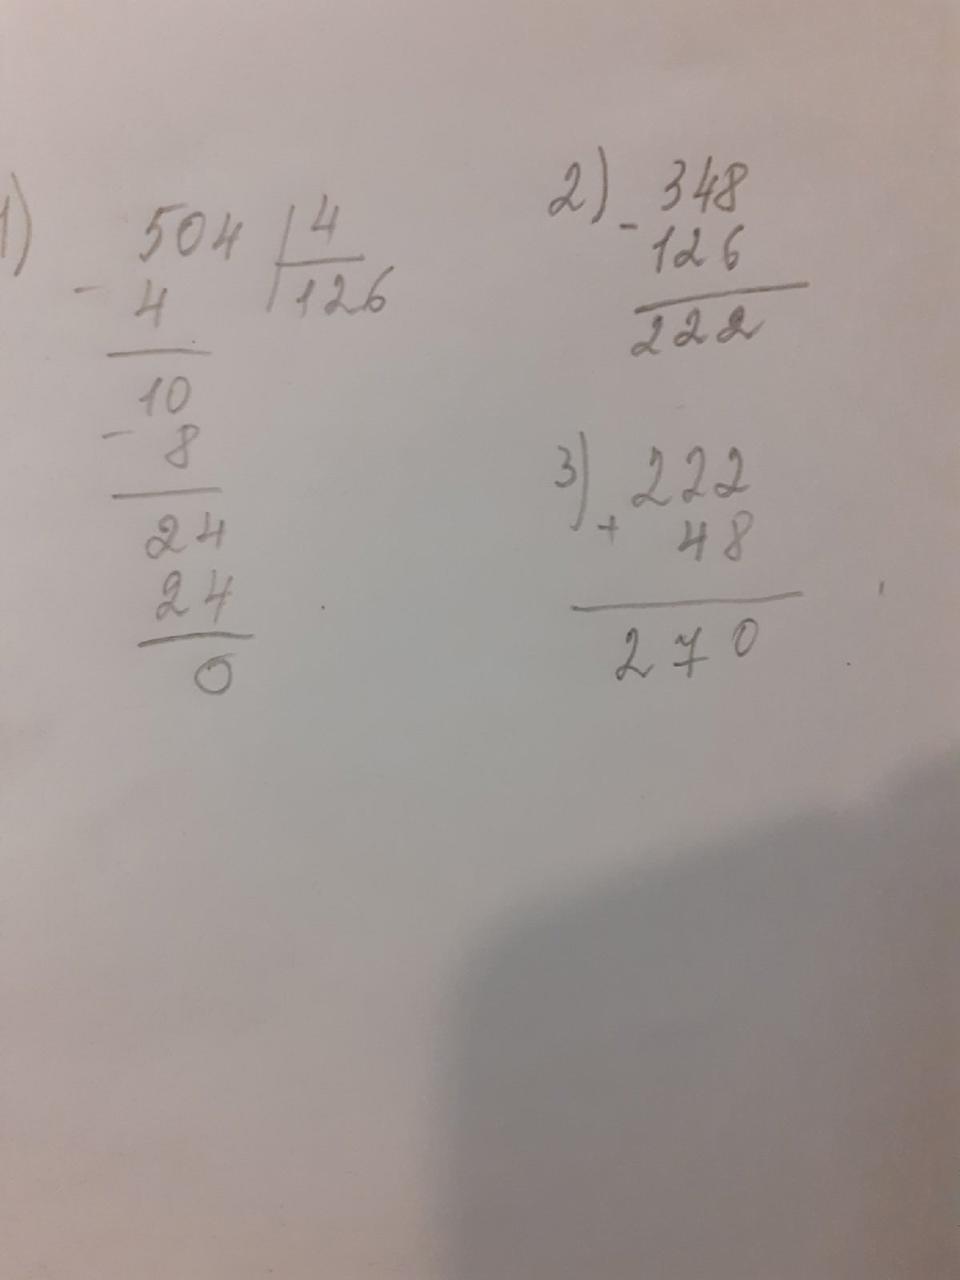 1) 504 | 4
- 4 126
10
- 8
24
24
0
2) - 348
126
222
3) + 222
48
270